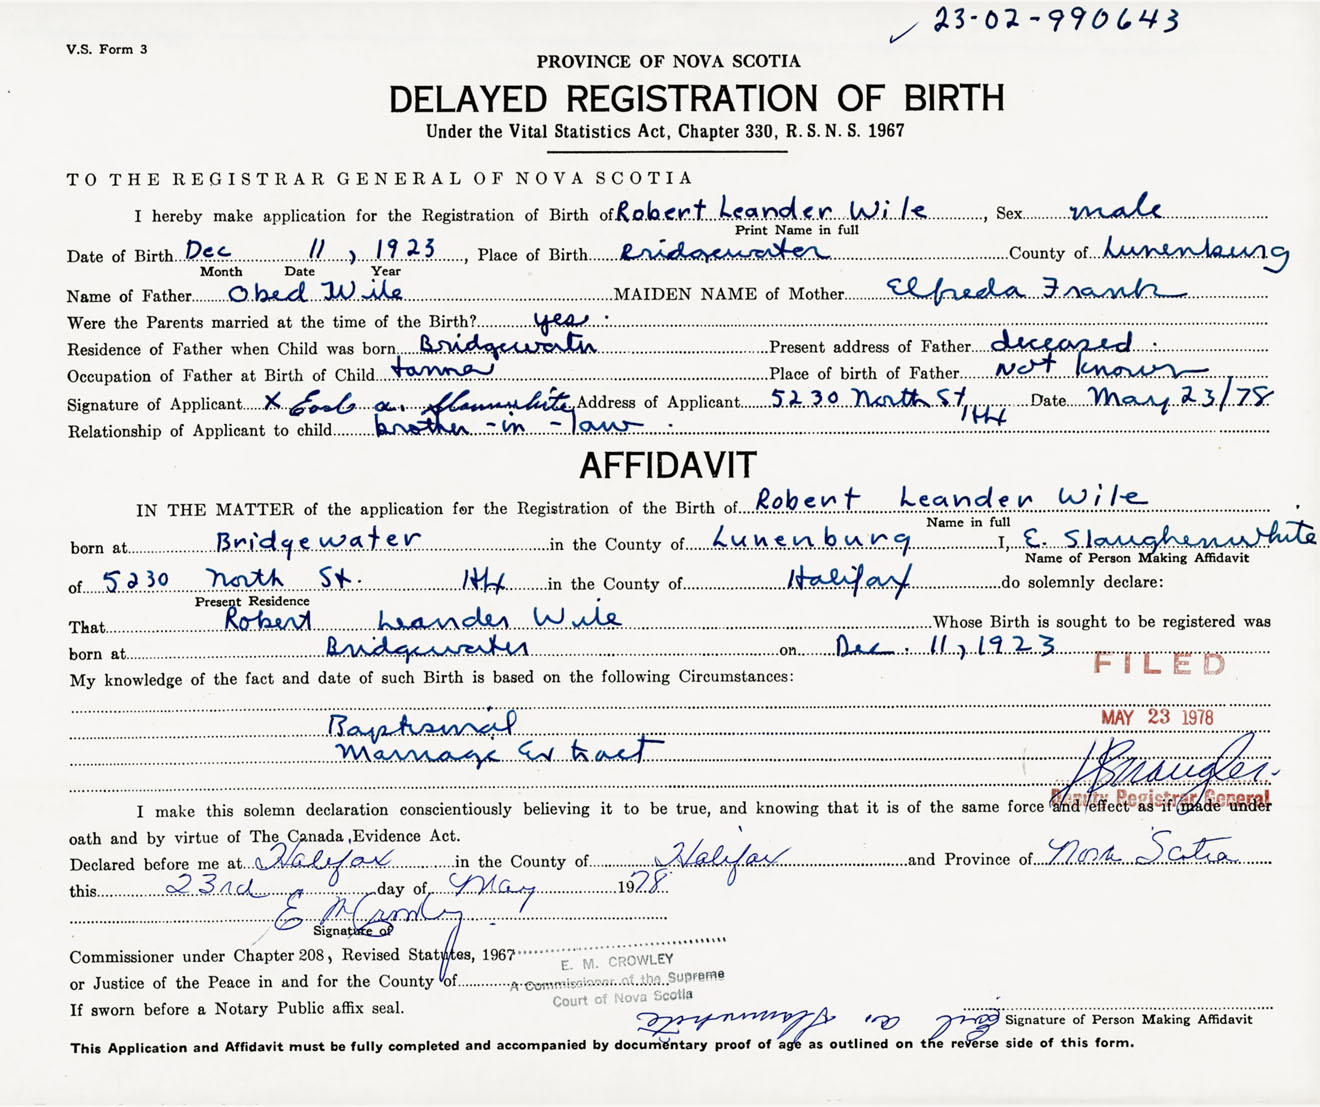 23-02-990643
V.S. Form 3
PROVINCE OF NOVA SCOTIA
DELAYED REGISTRATION OF BIRTH
Under the Vital Statistics Act, Chapter 330, R.S.N.S. 1967
TO THE REGISTRAR GENERAL OF NOVA SCOTIA
I hereby make application for the Registration of Birth of Robert Leander Wile, Sex male
Print Name in full
Date of Birth Dec 11, 1923, Place of Birth Bridgewater County of Lunenburg
Month Date Year
Name of Father Obed Wile MAIDEN NAME of Mother Elfreda Frank
Were the Parents married at the time of the Birth? yes.
Residence of Father when Child was born Bridgewater Present address of Father deceased.
Occupation of Father at Birth of Child tanner Place of birth of Father not known
Signature of Applicant X a. Slaunwhite Address of Applicant 5230 North St Hfx Date May 23/78
Relationship of Applicant to child brother-in-law.
AFFIDAVIT
IN THE MATTER of the application for the Registration of the Birth of Robert Leander Wile
Name in full
born at Bridgewater in the County of Lunenburg I, E. Slaughenwhite
Name of Person Making Affidavit
of 5230 North St. Hfx in the County of Halifax do solemnly declare:
Present Residence
That Robert Leander Wile Whose Birth is sought to be registered was
born at Bridgewater on Dec. 11, 1923
FILED
My knowledge of the fact and date of such Birth is based on the following Circumstances:
MAY 23 1978
Baptismal
Marriage Extract
Deputy Registrar General
I make this solemn declaration, conscientiously believing it to be true, and knowing that it is of the same force and effect as if made under
oath and by virtue of The Canada Evidence Act.
Declared before me at Halifax in the County of Halifax and Province of Nova Scotia
this 23rd day of May 1978
E M Crowley
Signature of
Commissioner under Chapter 208, Revised Statutes, 1967
or Justice of the Peace in and for the County of
E. M. CROWLEY
A Commissioner of the Supreme
Court of Nova Scotia
If sworn before a Notary Public affix seal.
Earl a. Slaunwhite
Signature of Person Making Affidavit
This Application and Affidavit must be fully completed and accompanied by documentary proof of age as outlined on the reverse side of this form.